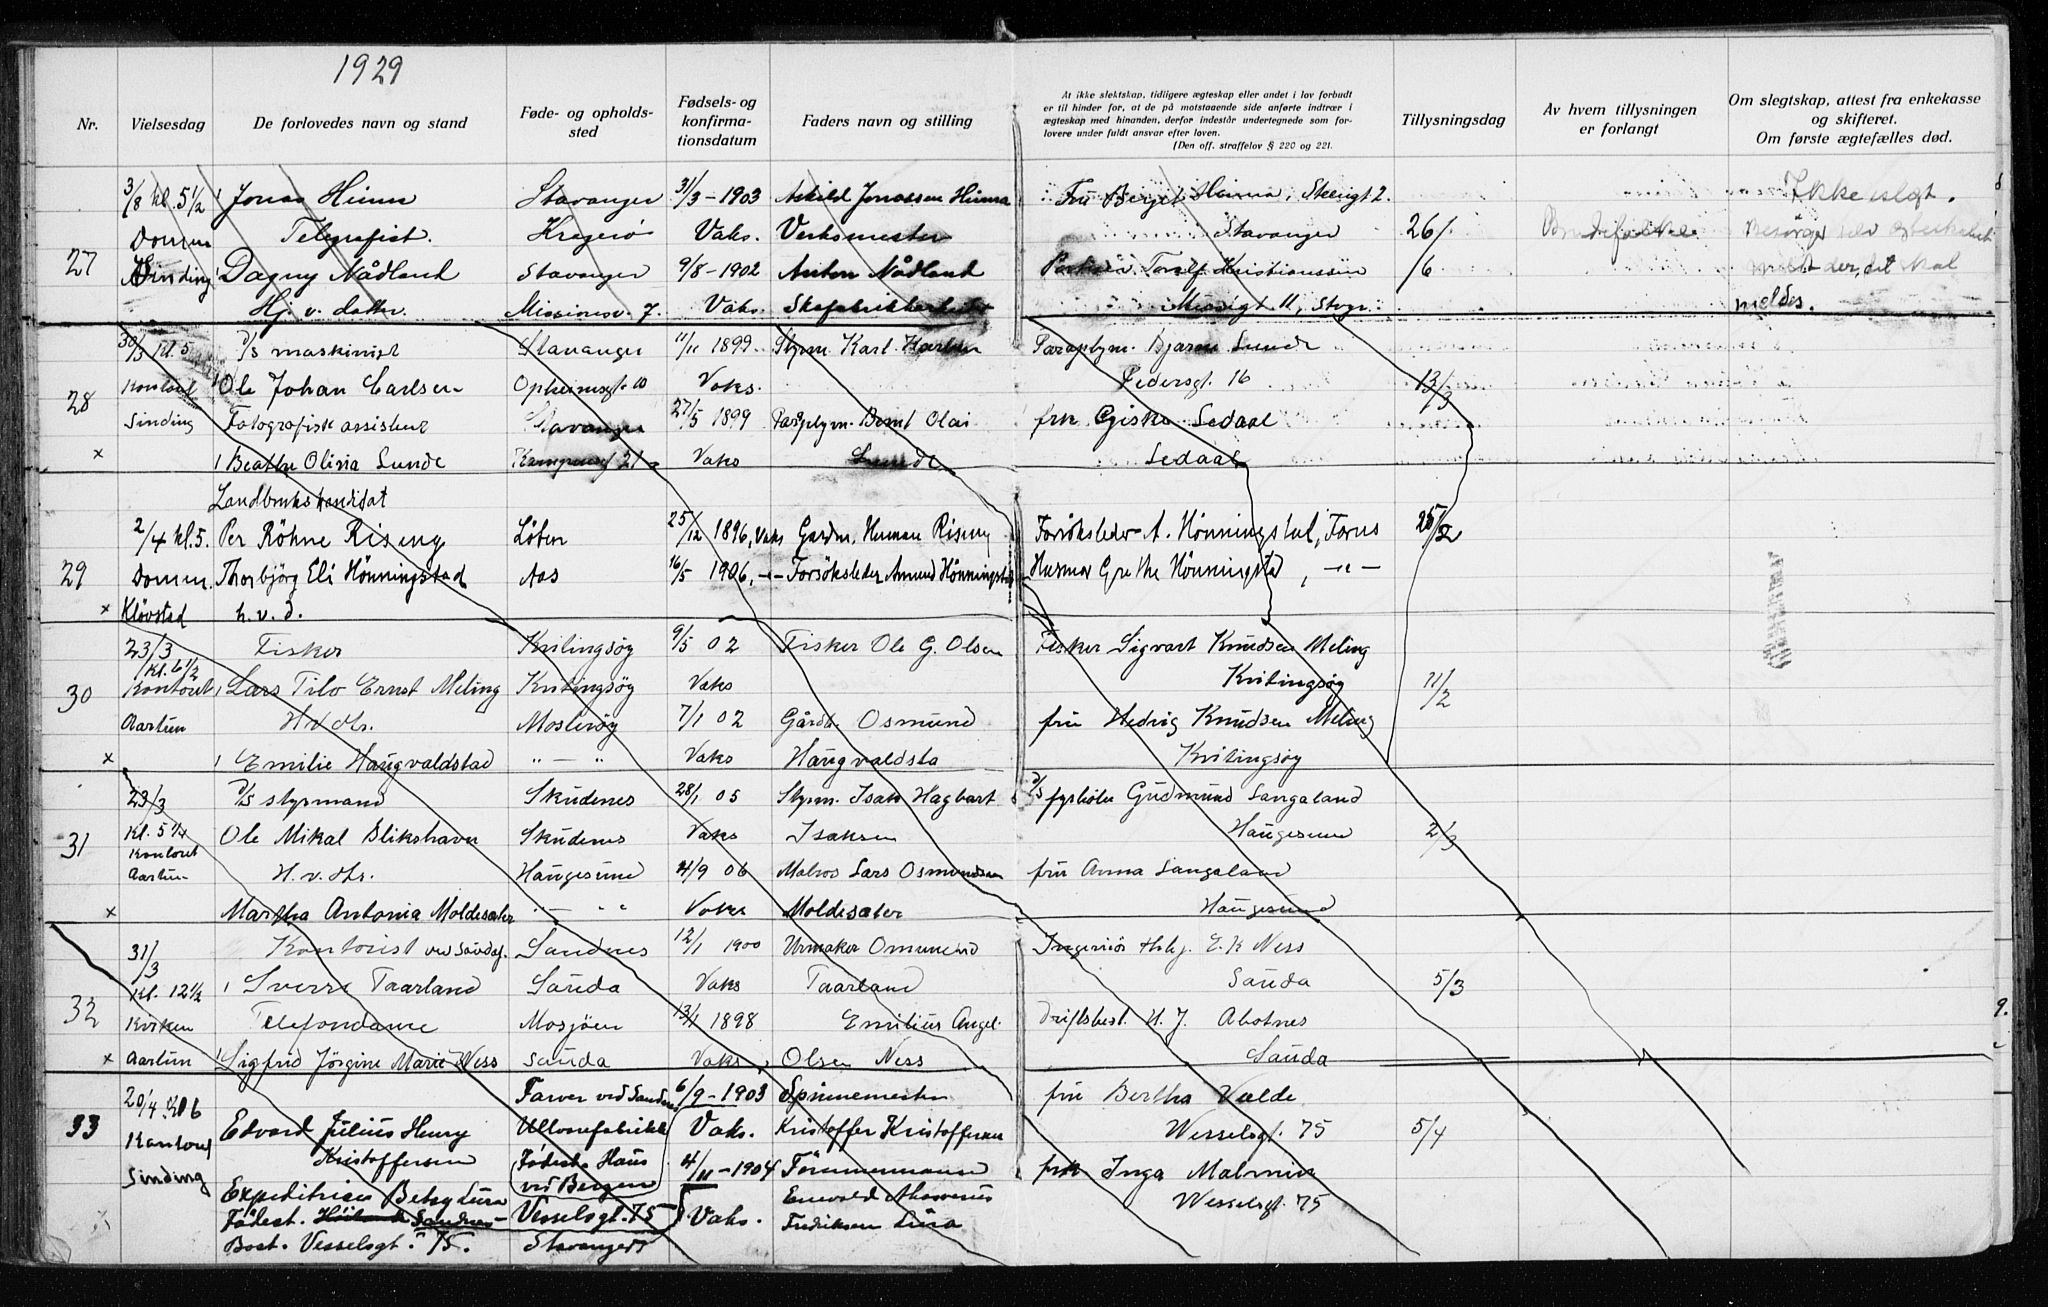 1929
Nr.
Vielsesdag
De forlovedes navn og stand
Føde- og opholds-
sted
Fødsels- og
konfirma-
tionsdatum
Faders navn og stilling
At ikke slektskap, tidligere ægteskap eller andet i lov forbudt
er til hinder for, at de på motstaaende side anførte indtrær i
ægteskap med hinanden, derfor indestår undertegnede som for-
lovere under fuldt ansvar efter loven.
(Den off. straffelov § 220 og 221.
Tillysningsdag
Av hvem tillysningen
er forlangt
Om slegtskap, attest fra enkekasse
og skifteret.
Om første ægtefælles død.
3/8 kl. 5½ Jonas Stavanger 31/3 - 1903 Askild Jonassen Fru Berget Ikke slegt.
Domm Telegrafist. Kragerø Vaks. Verksmester Stavanger 26/
27 Dagny Nådland Stavanger 9/8 - 1902 Anton Nådland Toralf Kristianssen /6
Hj. v. datter. Missionsv. 7. Vaks. meldes.
30/3 Kl. 5 D/S maskinist Stavanger 11/11 1899 Styrm. Karl Bjarne Lunde
28 Kontoret Ole Johan Carlsen Vaks. Pedersgt. 16 13/3
Sinding Fotografisk assistent Stavanger 27/5 1899 Bernt Olai frk Giske Sedaal
x Beathe Olivia Lunde 21 Vaks Lunde Sedaal
Landbrukskandidat
2/4 kl. 5. Per Röhne Rising Löten 25/12 1896, Vaks Gardm. Herman Rising Forsöksleder A. Hönningstad, Forus 25/2
29 Domm. Thorbjörg Eli Hönningstad Aas 16/5 1906, -"- Forsöksleder Amund Hönningstad Grethe Hönningstad, -"-
x Kløvstad h. v. d.
23/3 Fisker Kvitingsøy 9/5 02 Fisker Ole G. Olsen Fisker Sigvart Knudsen Meling
Kl. 6½ Kvitingsøy
30 Kontoret Lars Tilo Ernst Meling Kvitingsøy Vaks 11/2
Aartun H. v. dtr. Mosterøy 7/1 02 Gårdb. Osmund fru Hedvig Knudsen Meling
x Emilie Haugvaldstad " — " Vaks Haugvaldsta Kvitingsøy
23/3 D/S styrmand Skudenes 28/1 05 Styrm. Isak Hagbart D/S fyrbøter Gudmund Langaland
31 Kl. 5¼ Ole Mikal Blikshavn Skudenes Vaks Isaksen Haugesund 2/3
Kontoret
Aartun H. v. dtr. Haugesund 4/9 06 Matros Lars Osmundsen fru Anna Langaland
x Martha Antonia Moldesæter " — " Vaks Moldesæter Haugesund
31/3 Kontorist ved Sandnes 12/1 1900 Urmaker Omund Ingeniör E. K Ness
Kl. 12½ Sverre Taarland Sauda Vaks Taarland Sauda 5/3
32 Kirken Telefondame Mosjöen 13/1 1898 Emilius Angel. Driftsbest. H. J. Abotnes
x Aartun Sigfrid Jörgine Marie Ness Sauda Vaks Olsen Ness Sauda
20/4 Kl 6 Farver ved Sandnes 6/9 - 1903 Spinnemester fru Bertha Valde
33 Kontoret Edvard Julius Henry Uldvarefabrikk Vaks. Kristoffer Kristoffersen Wesselsgt. 75 5/4
Sinding Kristoffersen Födest. Haus 4/11 - 1904 Tömmermann frk Inga Malmin
Expeditrise Betsy Lura ved Bergen Enevald Wesselsgt. 75
Födest. Sandnes - Vesselsgt. 75 Vaks. Fredriksen Lura
Bost. Vesselsgt. 75. Stavanger
9.